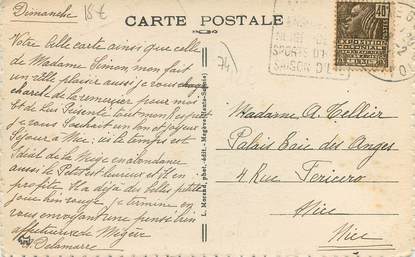 Dimanche
15€
CARTE POSTALE
Votre Jolie carte ainsi que celle
de Madame Simon mon fait
un réelle plaisir aussi je vous
charche de la remercier pour moi
et de lui Présenté tout mon respect
je vous Souhait un bon et joyeux
Séjour à Nice: ici le temps est
Idéal de la Neige en abondance
aussi le Petit est heureux et il en
profite. Il a déjà des belles petites
joue bien rouge. je termine en
vous envoyant une pensé bien
affectueuse de Megève
Delamarre
L. Morand, phot.-édit. - Megève (Haute-Savoie)
74
SPORTS D'HIVER
SAISON D'ÉTÉ
40c
EXPOSITION
COLONIALE
INTERNATIONALE
Madame A. Tellier
Palais Baie des Anges
4 Rue
Nice
Nice